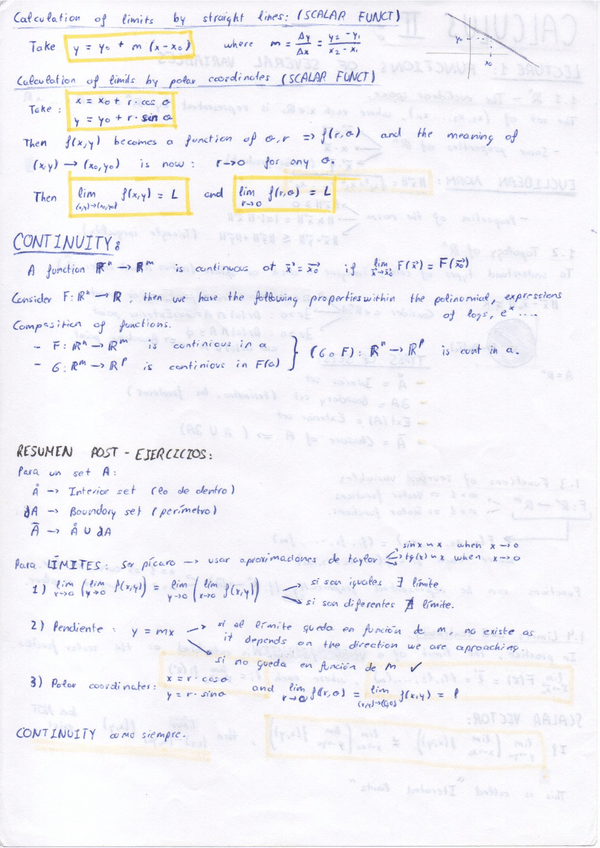 Calculation of limits by straight lines: (SCALAR FUNCT)
Take y = y₀ + m (x-x₀) where m = Δy/Δx = (y₂-y₁)/(x₂-x₁)
Calculation of limits by polar coordinates (SCALAR FUNCT)
Take: x = x₀ + r·cos θ
y = y₀ + r·sin θ
Then f(x,y) becomes a function of θ,r => f(r,θ) and the meaning of
(x,y) → (x₀,y₀) is now: r→0 for any θ.
Then lim (x,y)→(x₀,y₀) f(x,y) = L and lim r→0 f(r,θ) = L
CONTINUITY:
A function ℝⁿ → ℝᵐ is continuous at x⃗ = x⃗₀ if lim x⃗→x⃗₀ F(x⃗) = F(x⃗₀)
Consider F: ℝⁿ → ℝ, then we have the following properties within the polinomial, expressions
of logs, eˣ ....
Composition of functions.
- F: ℝⁿ → ℝᵐ is continious in a
- G: ℝᵐ → ℝᵖ is continious in F(a) } (G o F): ℝⁿ → ℝᵖ is cont in a.
RESUMEN POST-EJERCICIOS:
Para un set A:
Å → Interior set (lo de dentro)
∂A → Boundary set (perímetro)
Ā → Å ∪ ∂A
Para LÍMITES: ser pícaro → usar aproximaciones de taylor
sin x ≈ x when x→0
tg(x) ≈ x when x→0
1) lim x→0 (lim y→0 f(x,y)) = lim y→0 (lim x→0 f(x,y))
si son iguales ∃ límite.
si son diferentes ∄ límite.
2) Pendiente: y = mx
si el límite queda en función de m, no existe as
it depends on the direction we are aproaching
si no queda en función de m ✓
3) Polar coordinates: x = r·cosθ
y = r·sinθ and lim r→0 f(r,θ) = lim (x,y)→(0,0) f(x,y) = l
CONTINUITY como siempre.